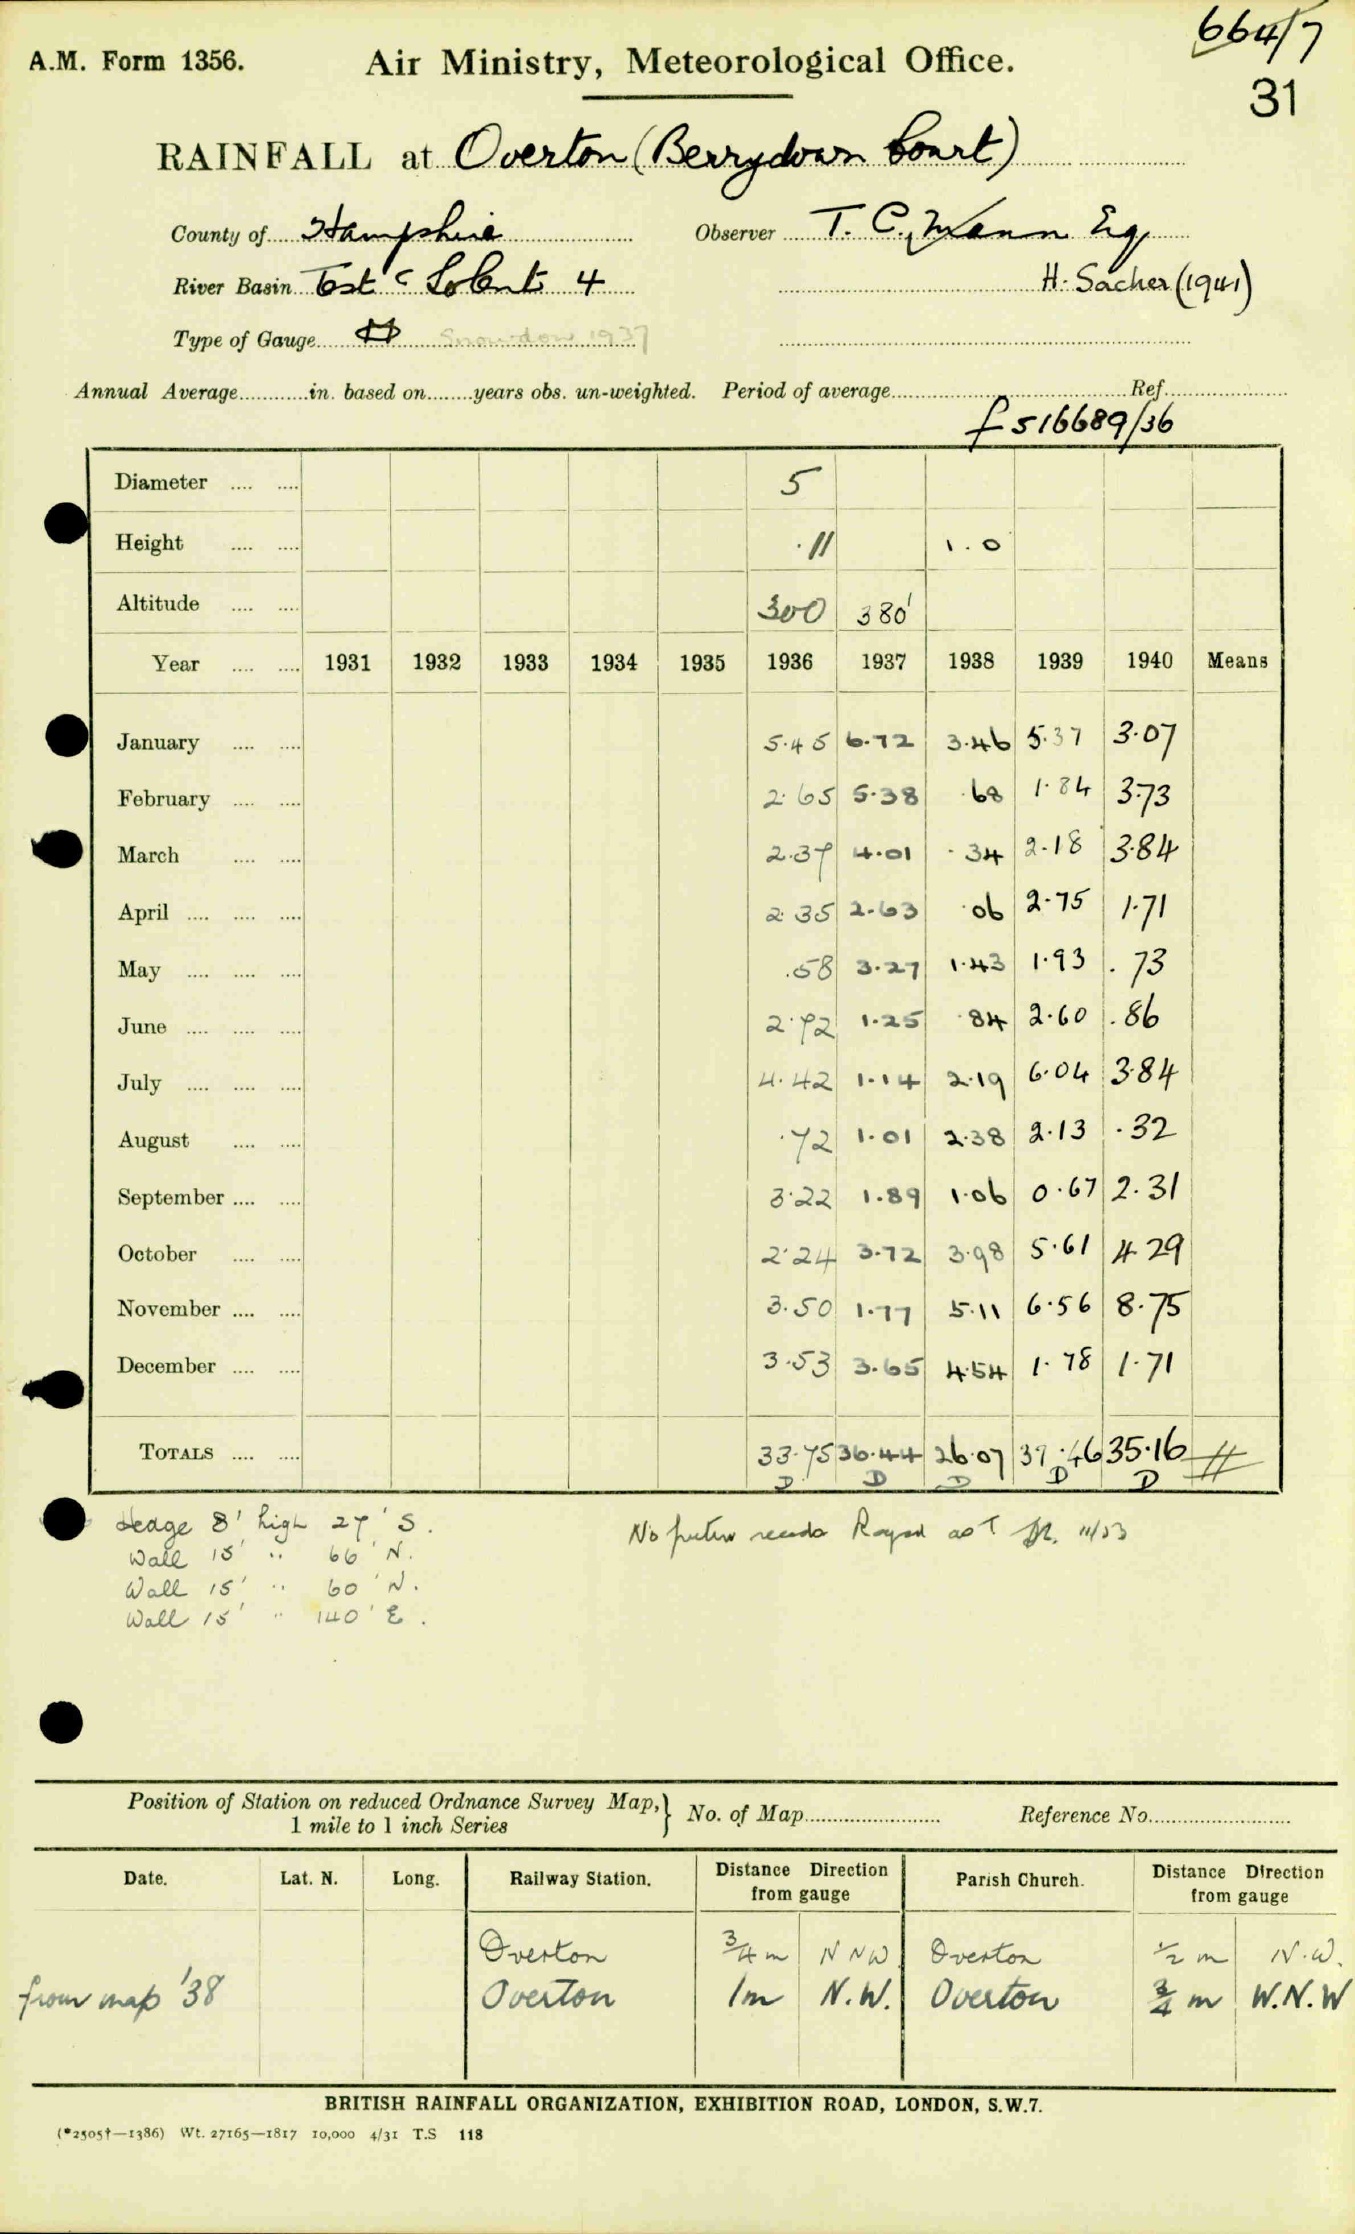 664/7
A.M. Form 1356. Air Ministry, Meteorological Office.
31
RAINFALL at Overton (Berrydown Court)
County of Hampshire Observer T. C. Mann Esq
River Basin Test & Solent 4 H. Sacher (1941)
Type of Gauge Snowdon 1937
Annual Average in. based on years obs. un-weighted. Period of average Ref.
f 516689/36
Diameter 5
Height .11 1.0
Altitude 300 380'
Year 1931 1932 1933 1934 1935 1936 1937 1938 1939 1940 Means
January 5.45 6.72 3.46 5.37 3.07
February 2.65 5.38 .68 1.84 3.73
March 2.37 4.01 .34 2.18 3.84
April 2.35 2.63 .06 2.75 1.71
May .58 3.27 1.43 1.93 .73
June 2.72 1.25 .84 2.60 .86
July 4.42 1.14 2.19 6.04 3.84
August .72 1.01 2.38 2.13 .32
September 3.22 1.89 1.06 0.67 2.31
October 2.24 3.72 3.98 5.61 4.29
November 3.50 1.77 5.11 6.56 8.75
December 3.53 3.65 4.54 1.78 1.71
TOTALS 33.75 36.44 26.07 39.46 35.16
D D D D D
Hedge 8' high 27' S.
Wall 15' " 66' N.
Wall 15' " 60' N.
Wall 15' " 140' E.
No further records 11/53
Position of Station on reduced Ordnance Survey Map, 1 mile to 1 inch Series } No. of Map Reference No.
Date. Lat. N. Long. Railway Station. Distance Direction from gauge Parish Church. Distance Direction from gauge
Overton 3/4 m N N W Overton 1/2 m N.W.
from map '38 Overton 1m N.W. Overton 3/4 m W.N.W
BRITISH RAINFALL ORGANIZATION, EXHIBITION ROAD, LONDON, S.W.7.
(*2505†—1386) Wt. 27165—1817 10,000 4/31 T.S 118